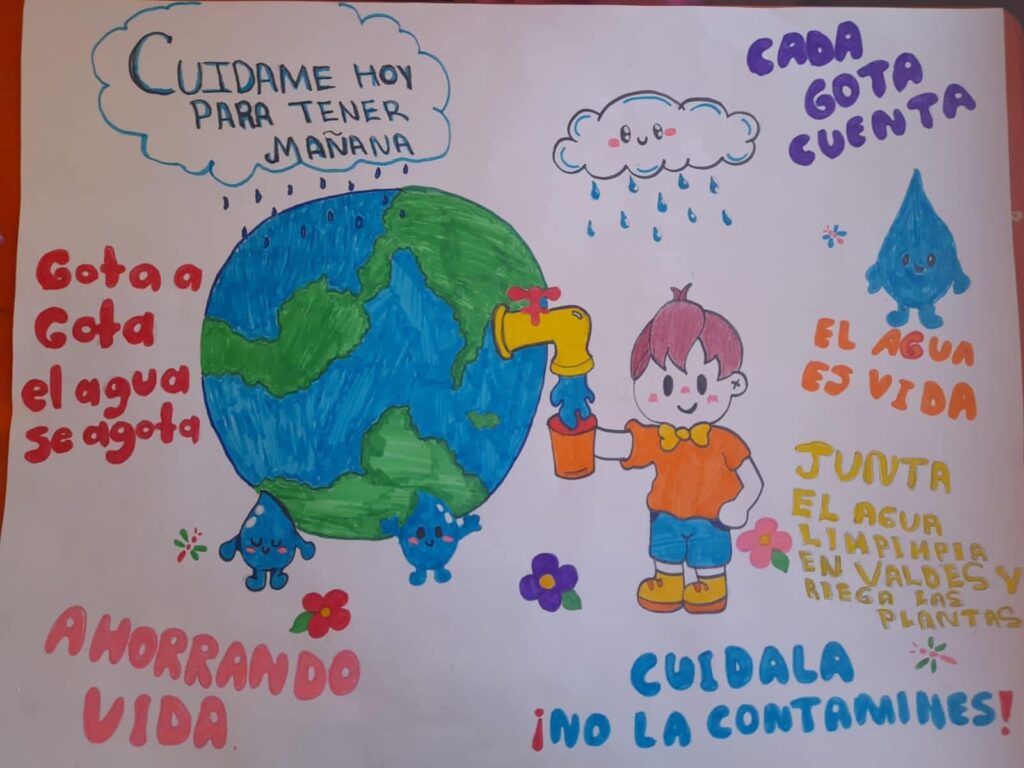 CUIDAME HOY
PARA TENER
MAÑANA
CADA
GOTA
CUENTA
Gota a
Gota
el agua
se agota
EL AGUA
ES VIDA
JUNTA
EL AGUA
LIMPIMPIA
EN VALDES Y
RIEGA LAS
PLANTAS
AHORRANDO
VIDA.
CUIDALA
¡NO LA CONTAMINES!